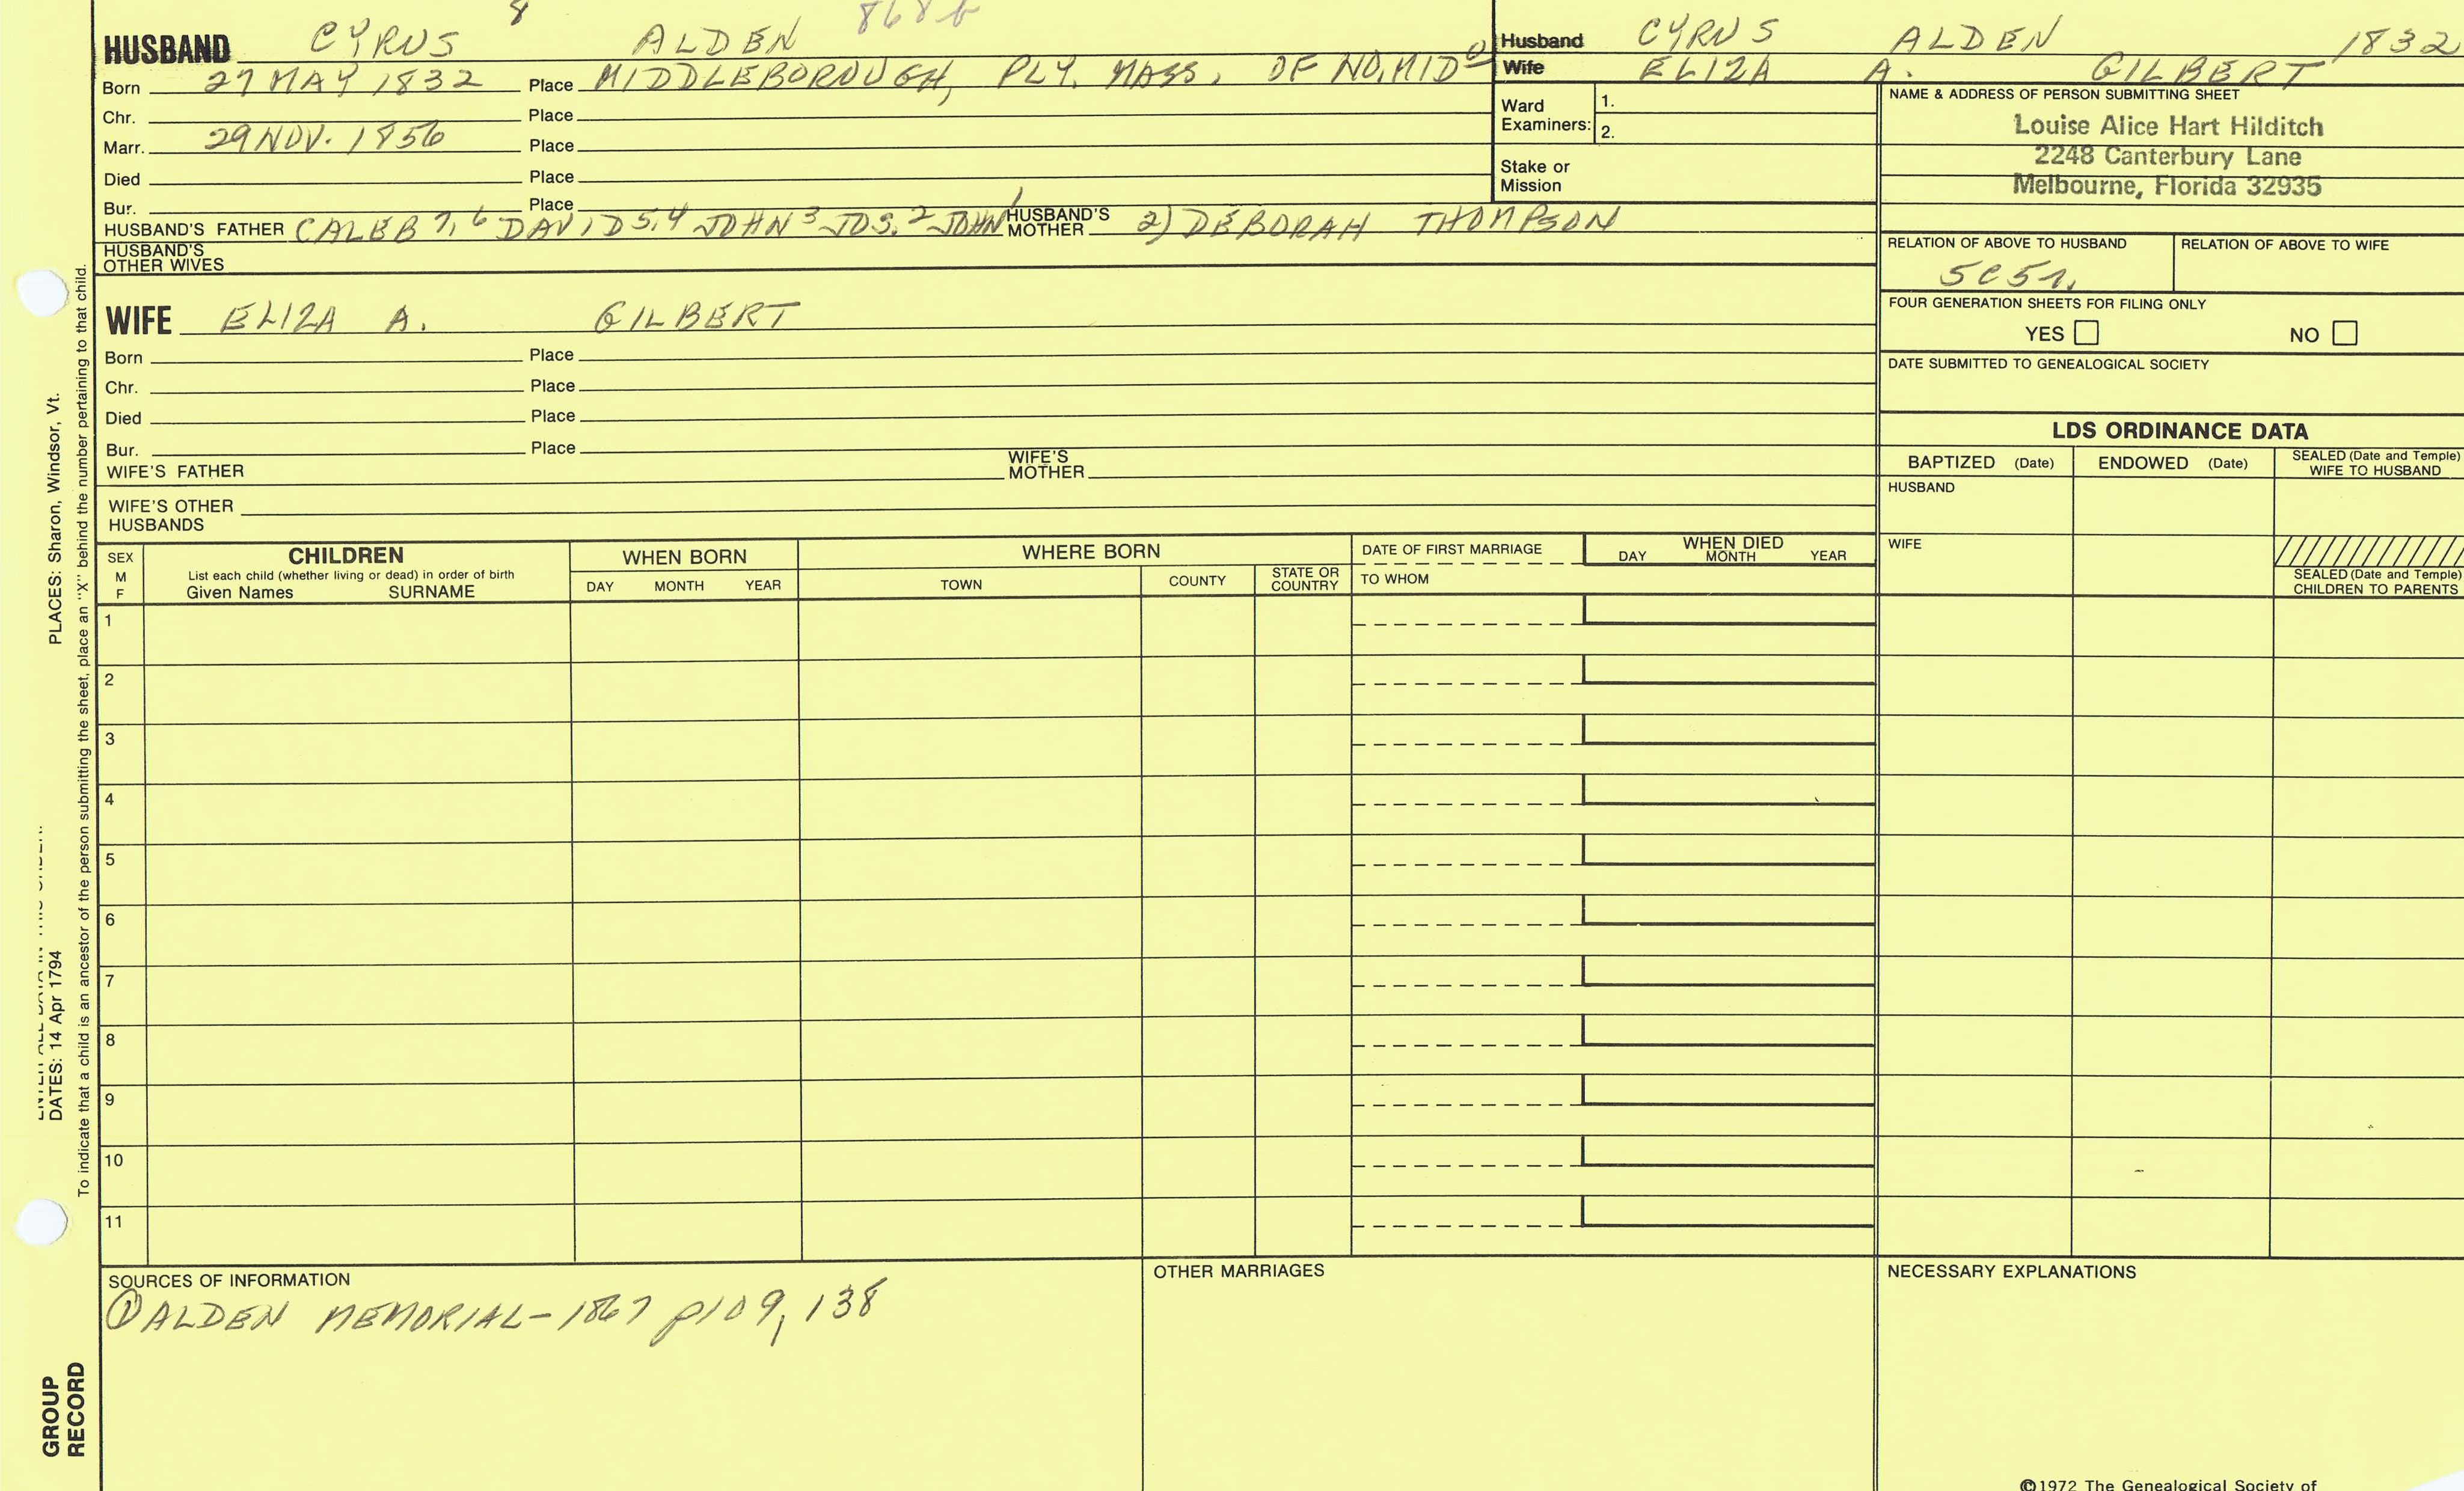 8 868b
HUSBAND CYRUS ALDEN
Born 27 MAY 1832 Place MIDDLEBOROUGH, PLY. MASS. OF NO. MID
Chr. Place
Marr. 29 NOV. 1856 Place
Died Place
Bur. Place
HUSBAND'S FATHER CALEB 7,6 DAVID 5,4 JOHN 3 JOS. 2 JOHN 1 HUSBAND'S MOTHER 2) DEBORAH THOMPSON
HUSBAND'S OTHER WIVES
WIFE ELIZA A. GILBERT
Born Place
Chr. Place
Died Place
Bur. Place
WIFE'S FATHER WIFE'S MOTHER
WIFE'S OTHER HUSBANDS
Husband CYRUS ALDEN 1832
Wife ELIZA A. GILBERT
Ward Examiners: 1.
2.
Stake or Mission
NAME & ADDRESS OF PERSON SUBMITTING SHEET
Louise Alice Hart Hilditch
2248 Canterbury Lane
Melbourne, Florida 32935
RELATION OF ABOVE TO HUSBAND RELATION OF ABOVE TO WIFE
FOUR GENERATION SHEETS FOR FILING ONLY
YES NO
DATE SUBMITTED TO GENEALOGICAL SOCIETY
LDS ORDINANCE DATA
BAPTIZED (Date) ENDOWED (Date) SEALED (Date and Temple) WIFE TO HUSBAND
HUSBAND
WIFE
SEALED (Date and Temple) CHILDREN TO PARENTS
SEX M F
CHILDREN
List each child (whether living or dead) in order of birth
Given Names SURNAME
WHEN BORN
DAY MONTH YEAR
WHERE BORN
TOWN COUNTY STATE OR COUNTRY
DATE OF FIRST MARRIAGE
TO WHOM
WHEN DIED
DAY MONTH YEAR
1
2
3
4
5
6
7
8
9
10
11
SOURCES OF INFORMATION
① ALDEN MEMORIAL - 1867 p109, 138
OTHER MARRIAGES
NECESSARY EXPLANATIONS
©1972 The Genealogical Society of
PLACES: Sharon, Windsor, Vt.
DATES: 14 Apr 1794
To indicate that a child is an ancestor of the person submitting the sheet, place an "X" behind the number pertaining to that child.
GROUP
RECORD